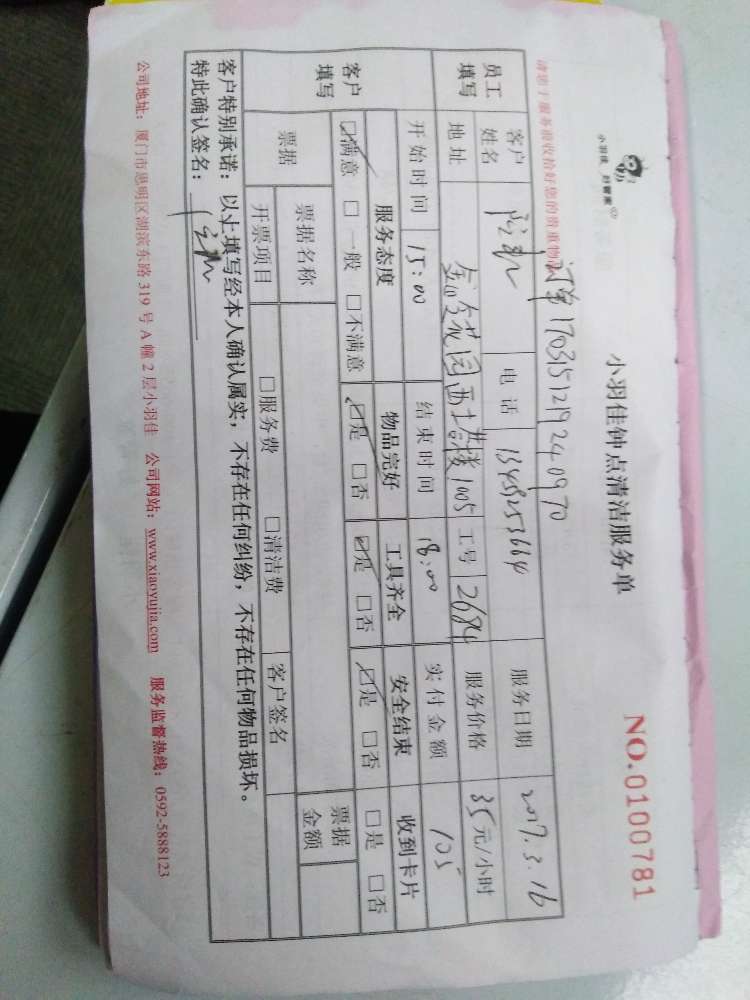 小羽佳 好管家
小羽佳钟点清洁服务单
NO.0100781
请您于服务前收拾好您的贵重物品
订单170315121924 0970
员工填写 客户姓名 电话 服务日期 2017.3.16
地址 金鸡花园西土楼1005 工号 2684 服务价格 35元/小时
开始时间 15:00 结束时间 18:00 实付金额 105
客户填写 服务态度 物品完好 工具齐全 安全结束 收到卡片
☑满意 □一般 □不满意 ☑是 □否 ☑是 □否 ☑是 □否 □是 □否
票据 票据名称 客户签名 票据金额
开票项目 □服务费 □清洁费
客户特别承诺：以上填写经本人确认属实，不存在任何纠纷，不存在任何物品损坏。
特此确认签名：
公司地址：厦门市思明区湖滨东路 319 号 A 幢 2 层小羽佳 公司网站：www.xiaoyujia.com 服务监督热线：0592-5888123